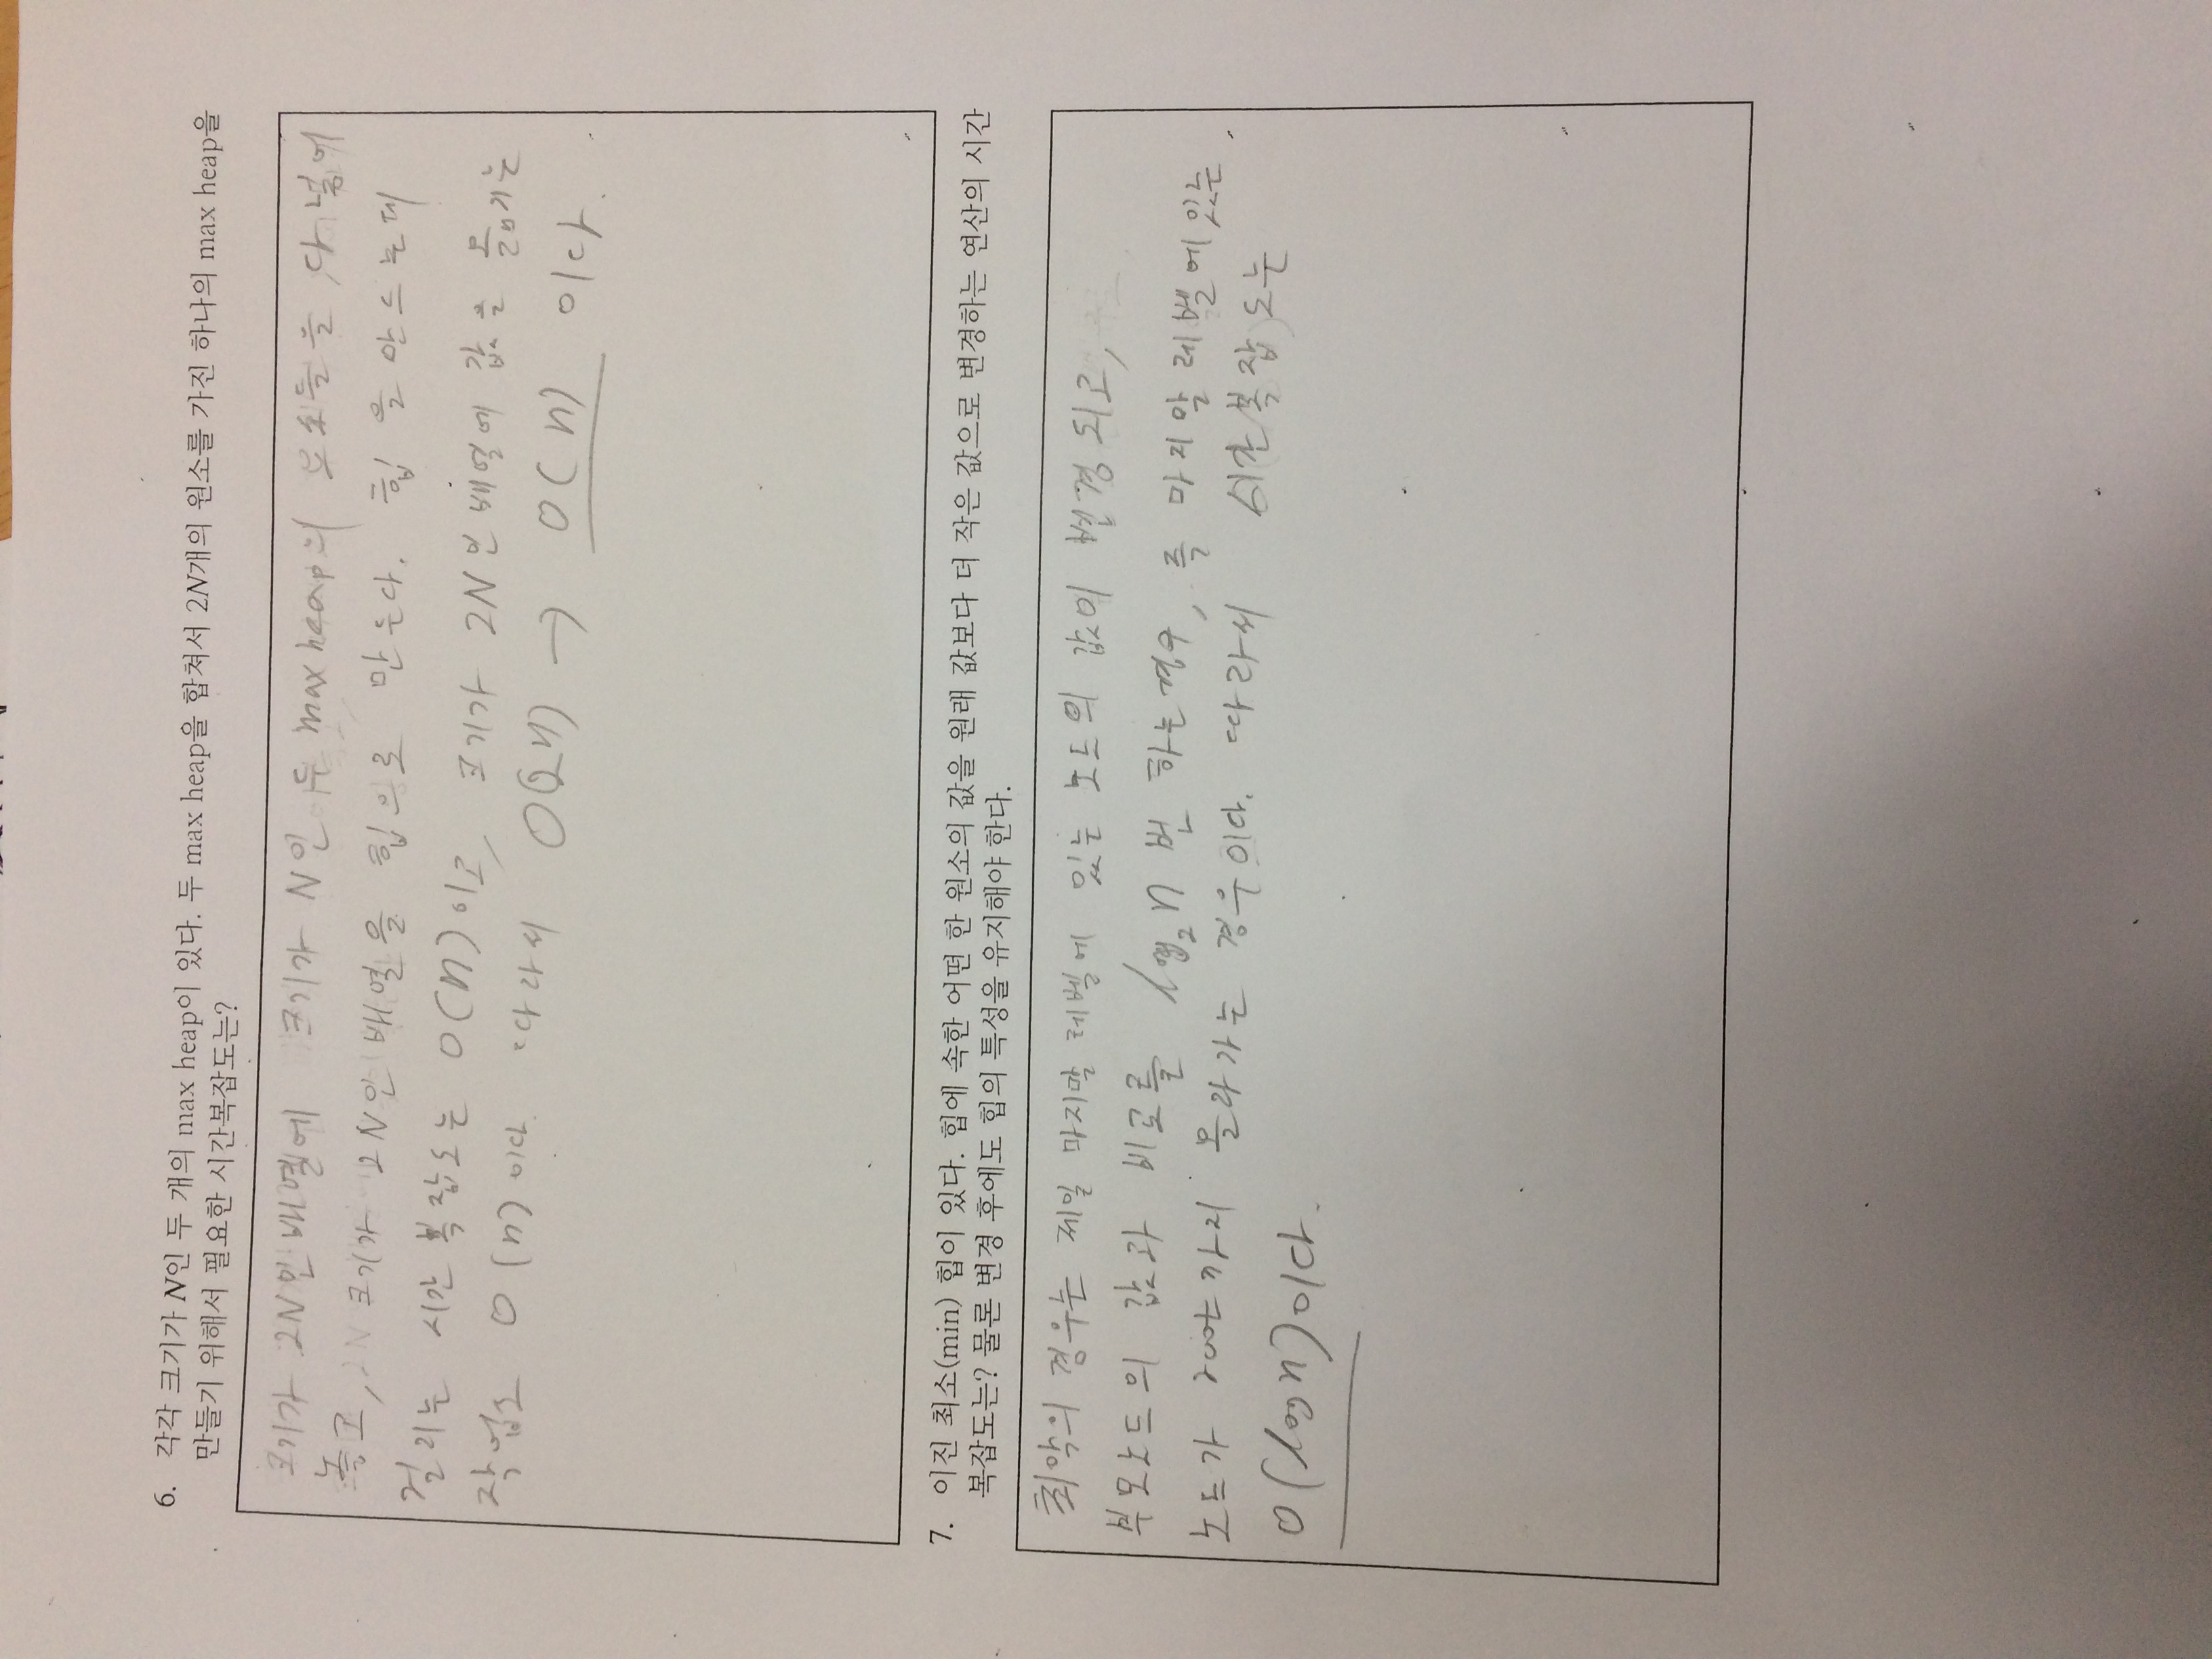 6. 각각 크기가 N인 두 개의 max heap이 있다. 두 max heap을 합쳐서 2N개의 원소를 가진 하나의 max heap을
만들기 위해서 필요한 시간복잡도는?
크기가 2N인 배열에 크기가 N인 두 max heap의 요소들을 다 넣어
놓고, 크기가 2N인 배열을 힙으로 만든다. 힙을 만드는데
걸리는 시간 복잡도는 O(n)이고, 크기가 2N인 배열에 값을 옮기는
작업도 O(n)이다. 따라서 O(2n) → O(n) 이다.
7. 이진 최소(min) 힙이 있다. 힙에 속한 어떤 한 원소의 값을 원래 값보다 더 작은 값으로 변경하는 연산의 시간
복잡도는? 물론 변경 후에도 힙의 특성을 유지해야 한다.
최악의 경우는 제일 마지막 레벨에 있는 노드의 값이 변경되고,
부모노드의 값과 비교를 log₂n 번 하는경우, 즉 마지막 레벨에 있는
노드가 root까지 올라가는 경우이다. 따라서 시간복잡도는
O(logn)이다.